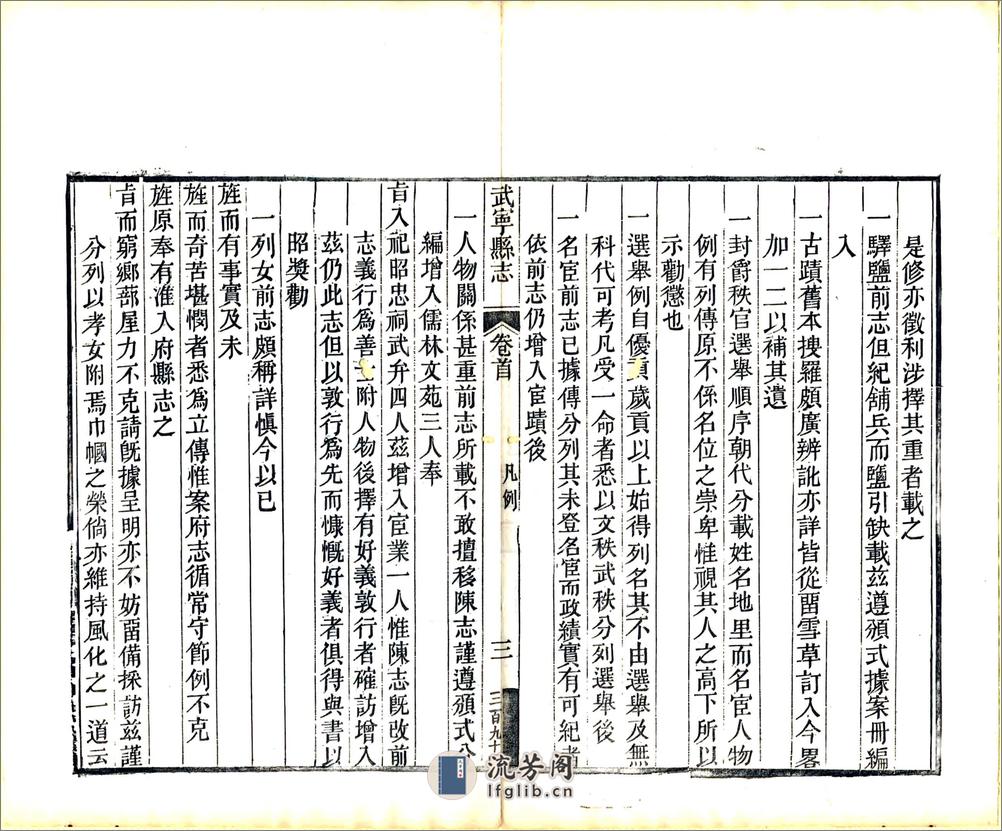 是修亦徵利涉擇其重者載之
一驛鹽前志但紀舖兵而鹽引缺載茲遵頒式據案冊編
入
一古蹟舊本搜羅頗廣辨訛亦詳皆從畱雪草訂入今畧
加一二以補其遺
一封爵秩官選舉順序朝代分載姓名地里而名宦人物
例有列傳原不係名位之崇卑惟視其人之高下所以
示勸懲也
一選舉例自優貢歲貢以上始得列名其不由選舉及無
科代可考凡受一命者悉以文秩武秩分列選舉後
一名宦前志已據傳分列其未登名宦而政績實有可紀者
依前志仍增入宦蹟後
武寧縣志 卷首 凡例 三 三百九十
一人物關係甚重前志所載不敢擅移陳志謹遵頒式分
編增入儒林文苑三人奉
旨入祀昭忠祠武弁四人茲增入宦業一人惟陳志旣改前
志義行爲善士附人物後擇有好義敦行者確訪增入
茲仍此志但以敦行爲先而慷慨好義者俱得與書以
昭獎勸
一列女前志頗稱詳愼今以已
旌而有事實及未
旌而奇苦堪憫者悉爲立傳惟案府志循常守節例不克
旌原奉有准入府縣志之
旨而窮鄉蔀屋力不克請旣據呈明亦不妨畱備採訪茲謹
分列以孝女附焉巾幗之榮倘亦維持風化之一道云
流芳阁
lfglib.cn